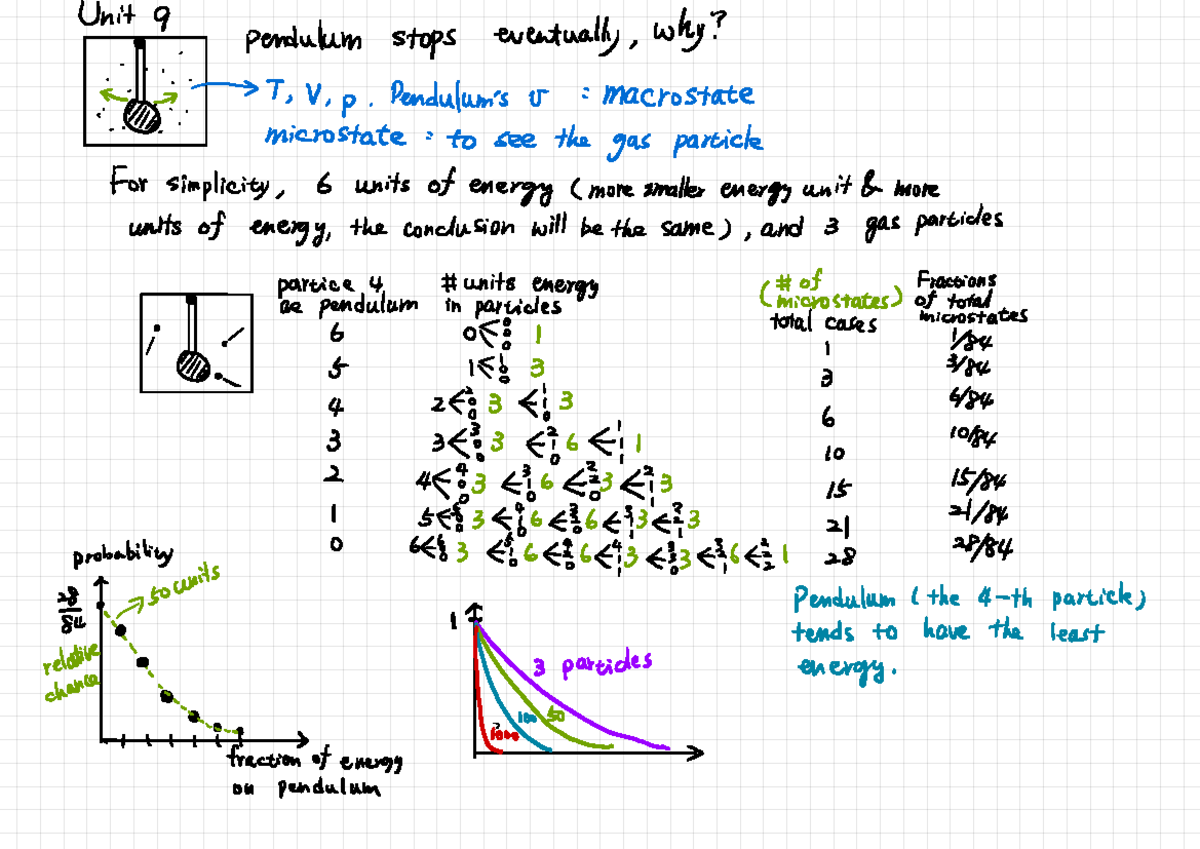 Unit 9
pendulum stops eventually, why?
T, V, p. Pendulum's v : macrostate
microstate : to see the gas particle
For simplicity, 6 units of energy (more smaller energy unit & more
units of energy, the conclusion will be the same), and 3 gas particles
partice 4
as pendulum
# units energy
in particles
(# of
microstates)
total cases
Fractions
of total
microstates
6 0< 0 0 0 1 1 1/84
5 1< 1 0 0 3 3 3/84
4 2< 2 0 0 3 < 1 1 0 3 6 6/84
3 3< 3 0 0 3 < 2 1 0 6 < 1 1 1 1 10 10/84
2 4< 4 0 0 3 < 3 1 0 6 < 2 2 0 3 < 2 1 1 3 15 15/84
1 5< 5 0 0 3 < 4 1 0 6 < 3 2 0 6 < 3 1 1 3 < 2 2 1 3 21 21/84
0 6< 6 0 0 3 < 5 1 0 6 < 4 2 0 6 < 4 1 1 3 < 3 3 0 3 < 3 2 1 6 < 2 2 2 1 28 28/84
probability
28/84
50 units
relative
chance
fraction of energy
on pendulum
1
3 particles
100
50
1000
Pendulum (the 4-th particle)
tends to have the least
energy.